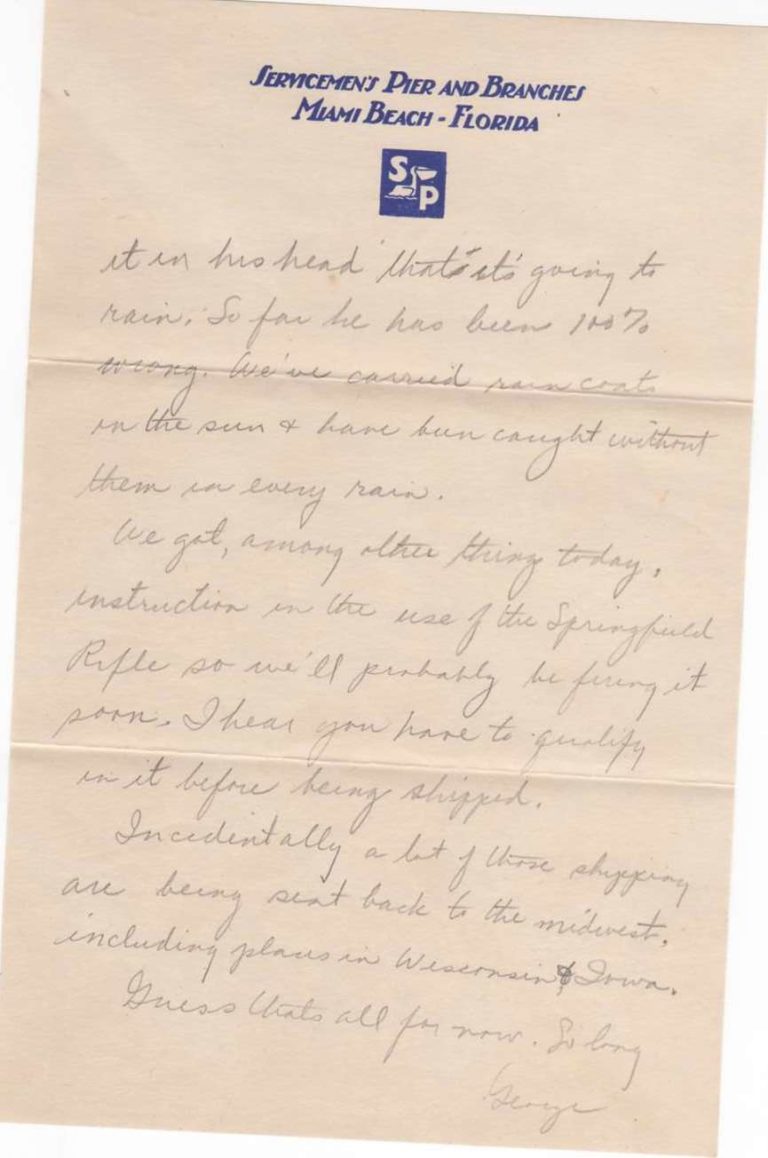 SERVICEMEN'S PIER AND BRANCHES
MIAMI BEACH - FLORIDA
S P
it in his head that it's going to
rain. So far he has been 100%
wrong. We've carried rain coats
in the sun & have been caught without
them in every rain.
We got, among other things today,
instruction in the use of the Springfield
Rifle so we'll probably be firing it
soon. I hear you have to qualify
in it before being shipped.
Incidentally a lot of those shipping
are being sent back to the midwest,
including places in Wisconsin & Iowa.
Guess thats all for now. So long
George